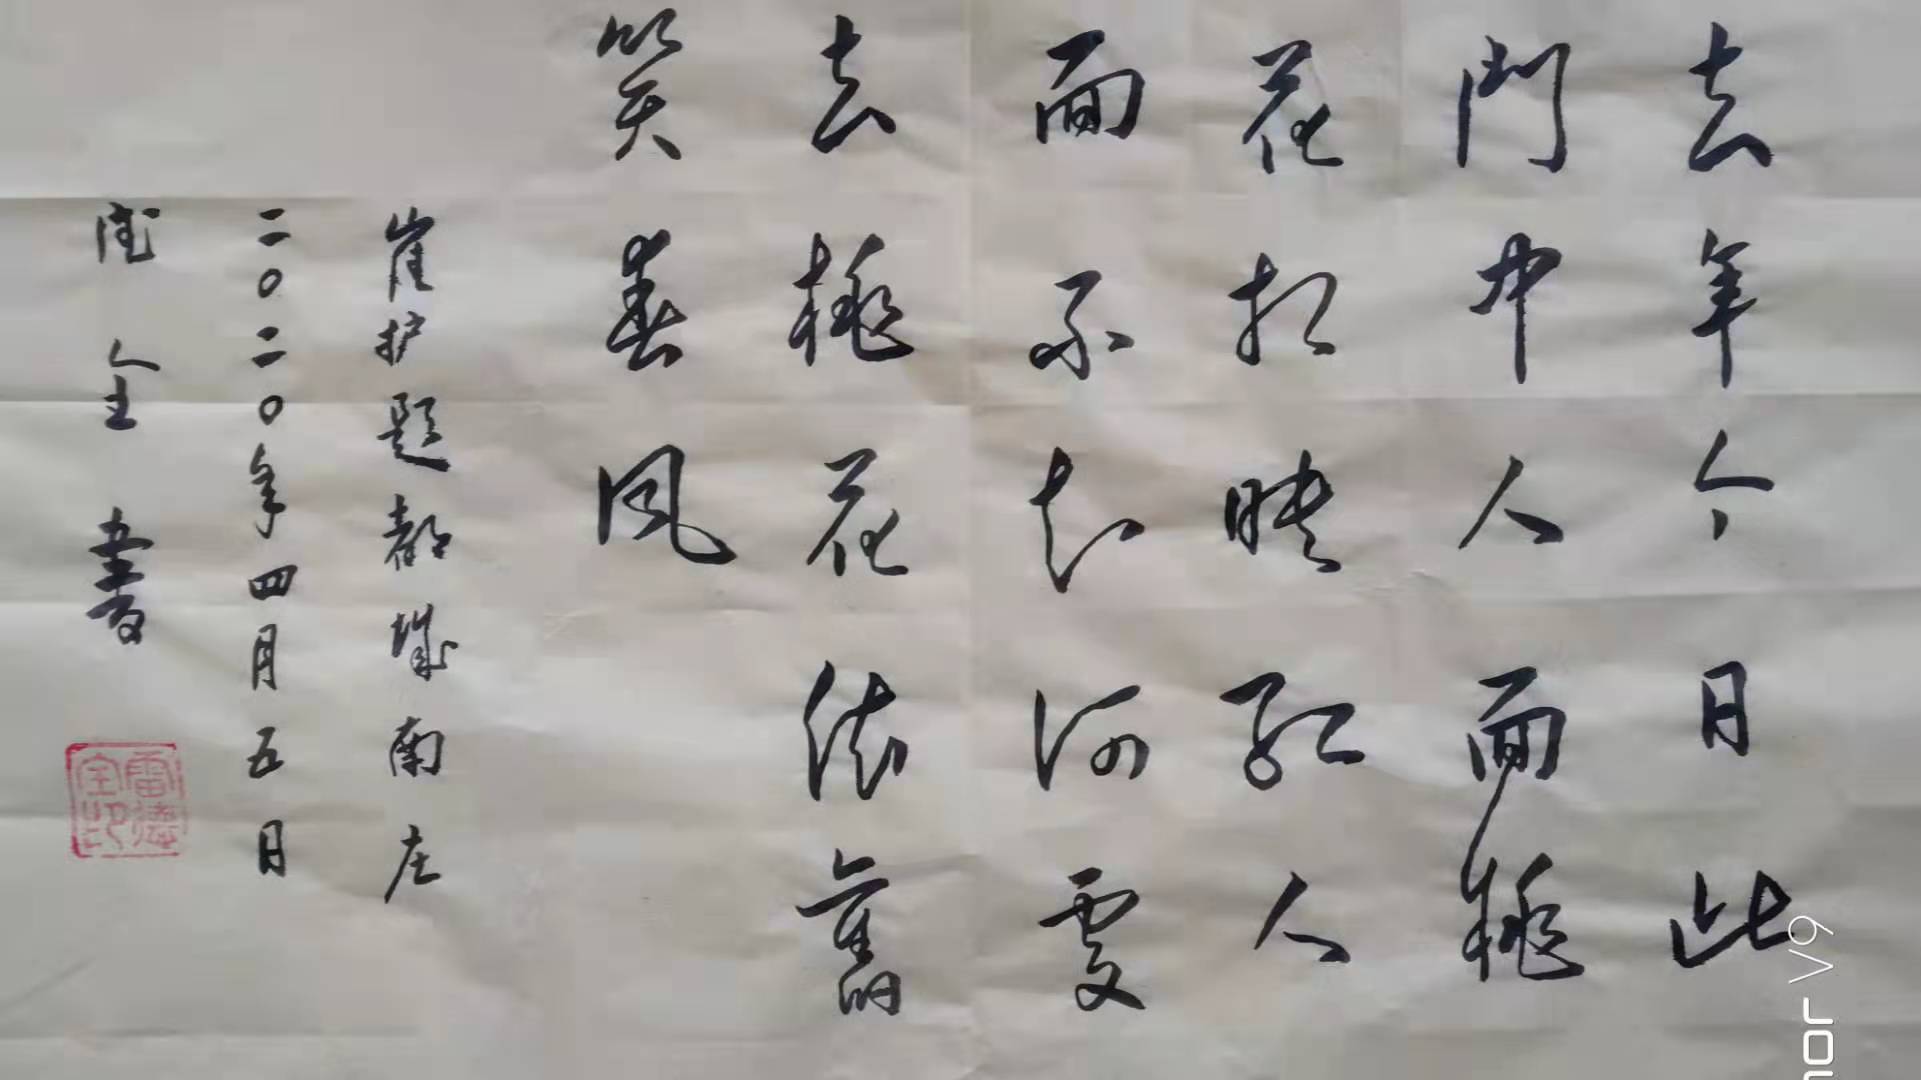 去年今日此
門中人面桃
花相映红人
面不知何處
去桃花依舊
笑春风
崔护题都城南庄
二〇二〇年四月五日
德全書
雷德全印
nor V9